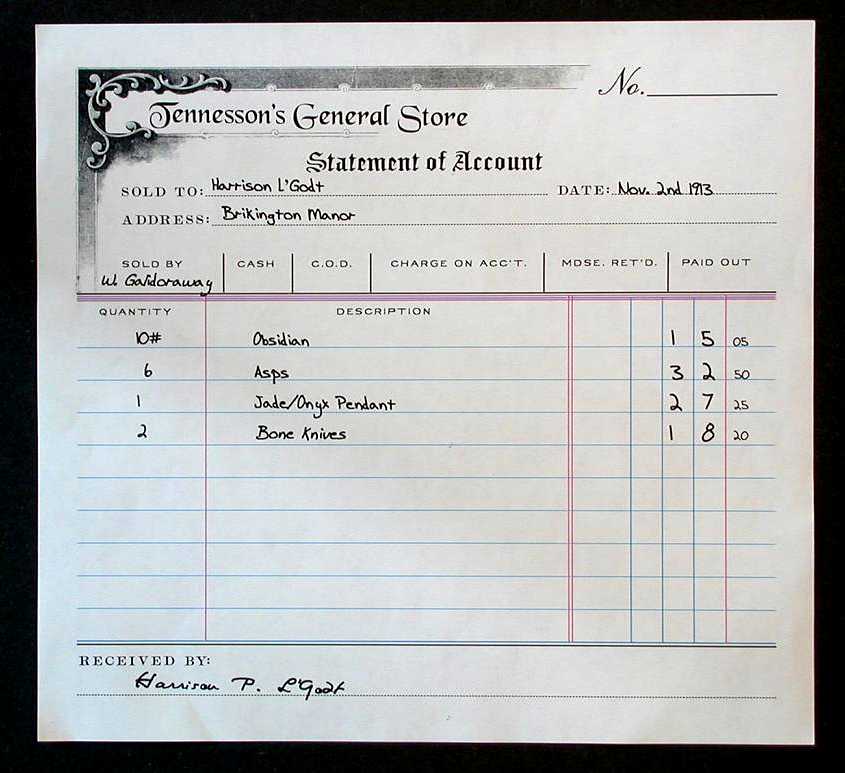 No.
Tennesson's General Store
Statement of Account
SOLD TO: Harrison L'Godt DATE: Nov. 2nd 1913
ADDRESS: Brikington Manor
SOLD BY CASH C.O.D. CHARGE ON ACC'T. MDSE. RET'D. PAID OUT
W. Galidoraway
QUANTITY DESCRIPTION
10# Obsidian 15 05
6 Asps 32 50
1 Jade/Onyx Pendant 27 25
2 Bone Knives 18 20
RECEIVED BY:
Harrison P. L'Godt